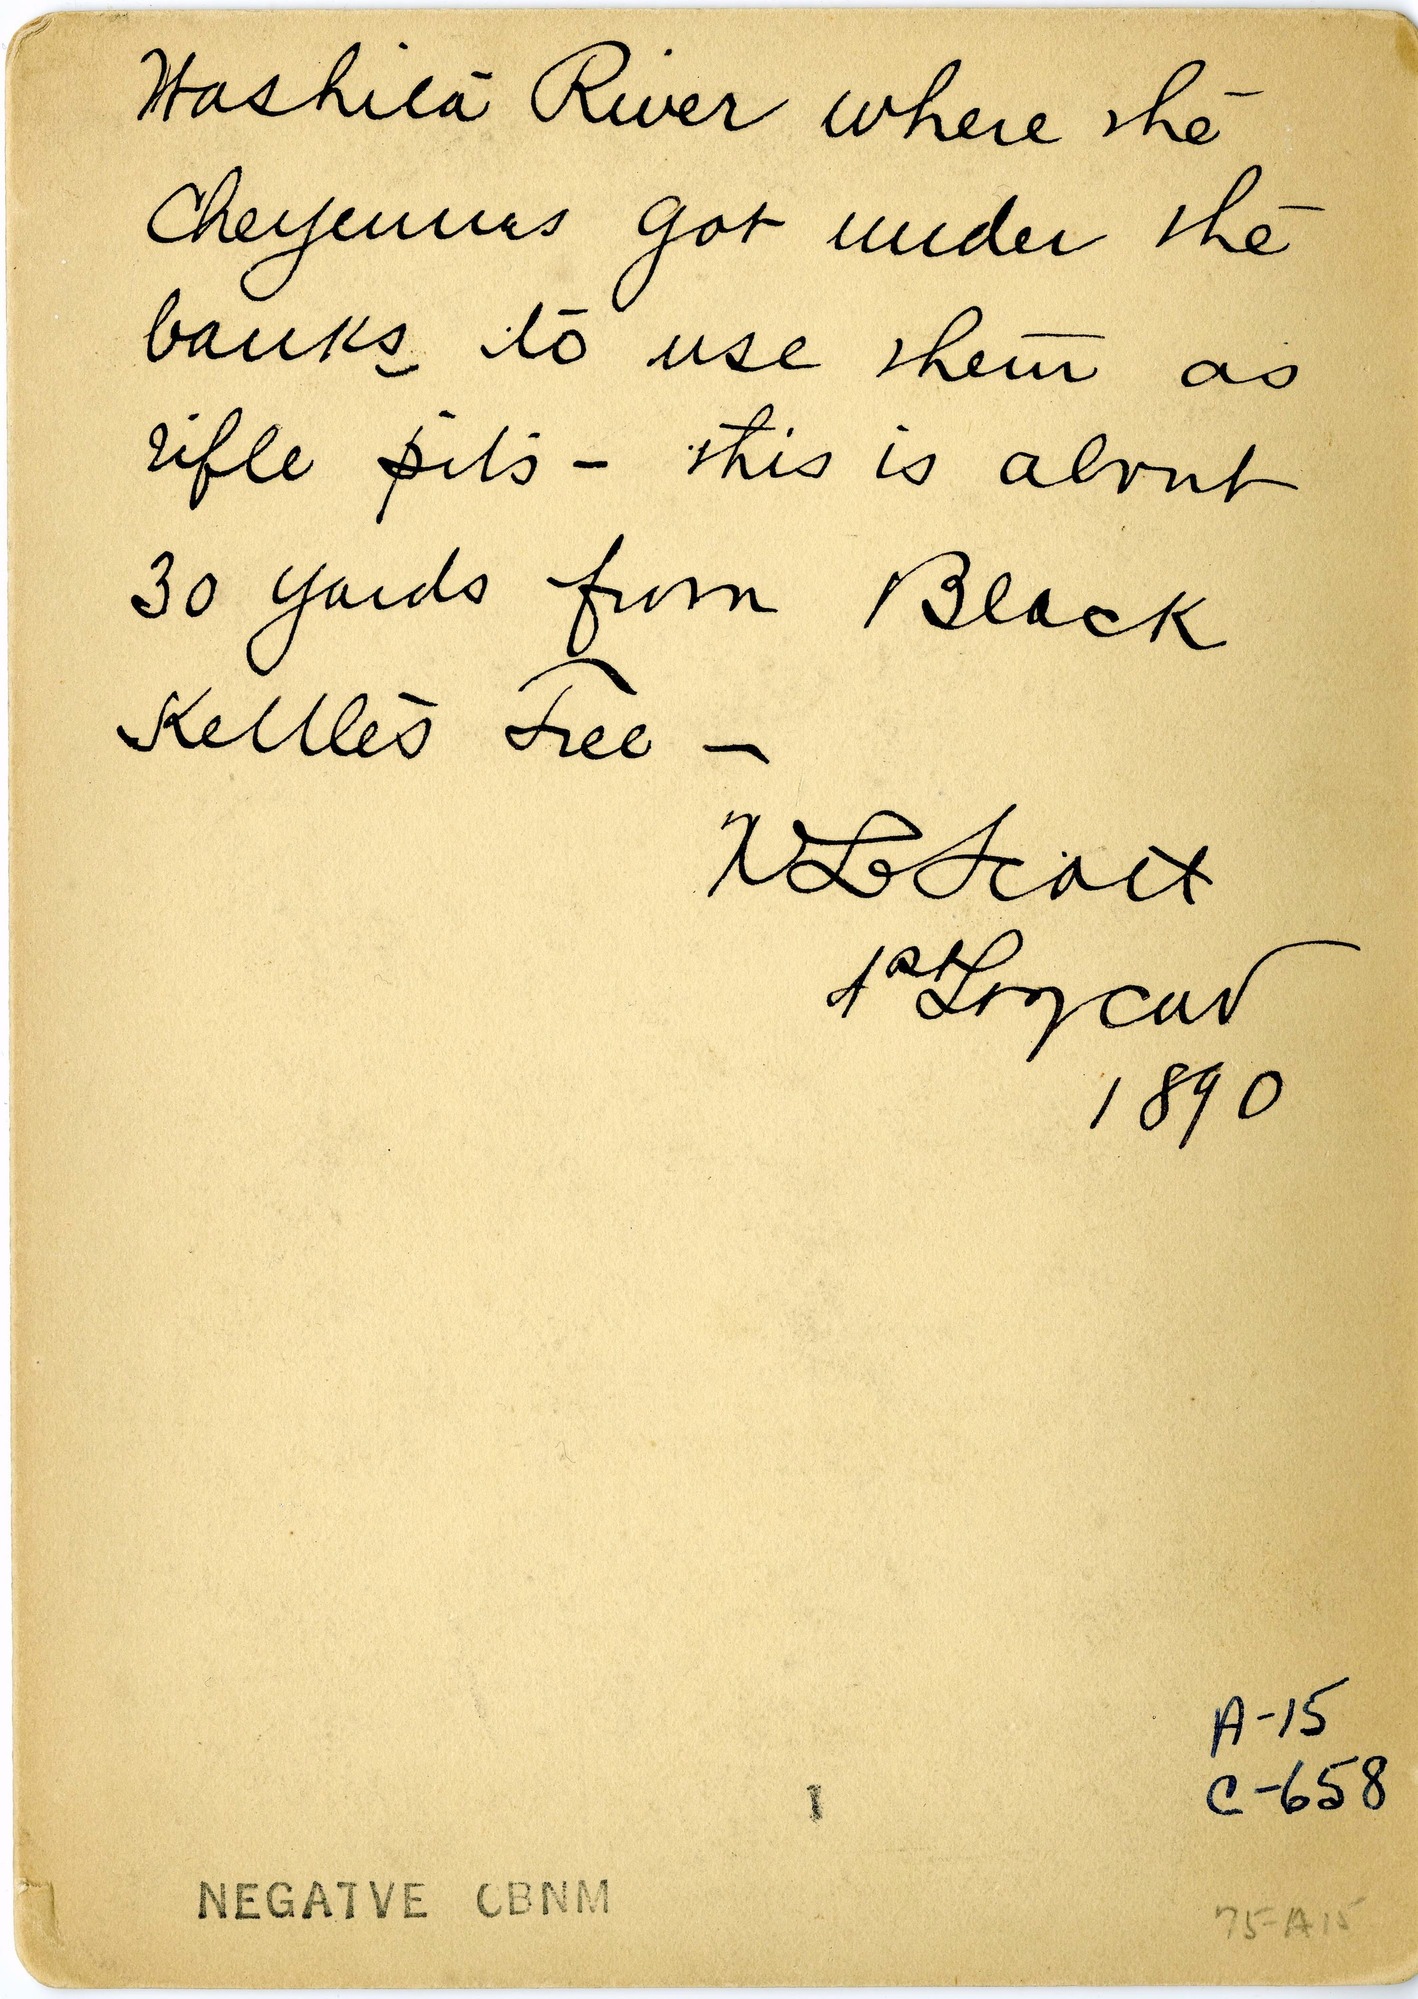 Washita River where the
Cheyennes got under the
banks to use them as
rifle pits - this is about
30 yards from Black
Kettles Tree -
H L Scott
1st Lt 7 Cav
1890
A-15
C-658
1
NEGATVE CBNM
75-A15